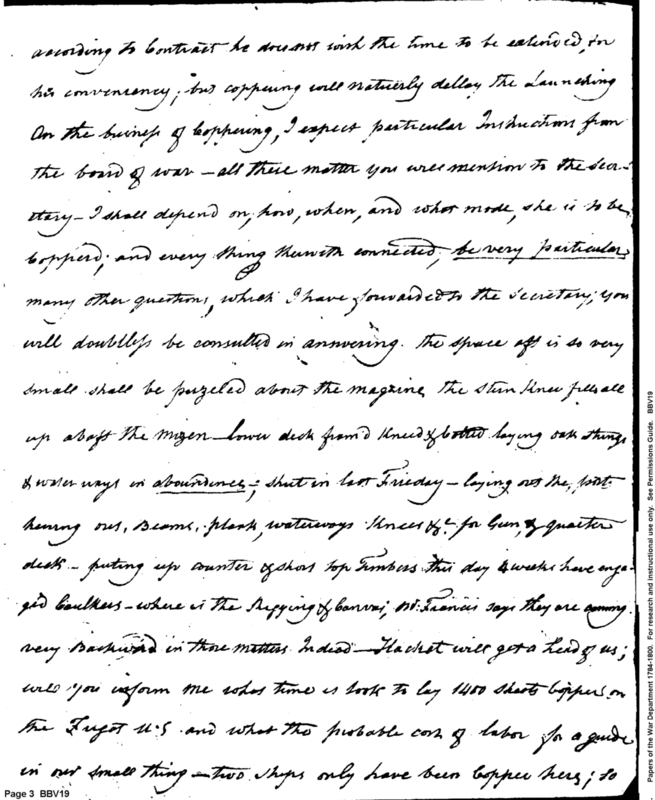 according to Contract he does not wish the time to be extended, for
his conveniency; but coppering will naturerly dellay the Launching
On the buiness of Coppering, I expect particular Instructions from
the board of war – all these matter you will mention to the Secr-
etary – I shall depend on, how, when, and what mode, she is to be
Copperd; and every thing therewith connected; be very particular,
many other questions, which I have forwarded to the Secretary; you
will doubtless be consulted in annwering. the space aft is so very
small shall be puzeled about the magazine, the stern knee fills all
up abaft the mizen – lower deck fram'd kneed & bolted laying oak strings
& water ways in aboundence –; shut in last Frieday – laying out the, port
hewing out, Beams, plank, waterways knees &c for Gun, & quarter
deck – puting up counter & short top timbers this day 4 weeks have enga-
ged Caulkers – where is the Rigging & Canvas, Mr. Francis says they are coming
very Backward in those matters Indeed – Hacket will get a head of us;
will you inform me what time is took to lay 1400 sheets Copper on
the Frigot U:S and what the probable cost of labor for a guide
in our small thing – two ships only have been Copper here; So
Page 3 BBV19
Papers of the War Department 1784-1800. For research and instructional use only. See Permissions Guide. BBV19